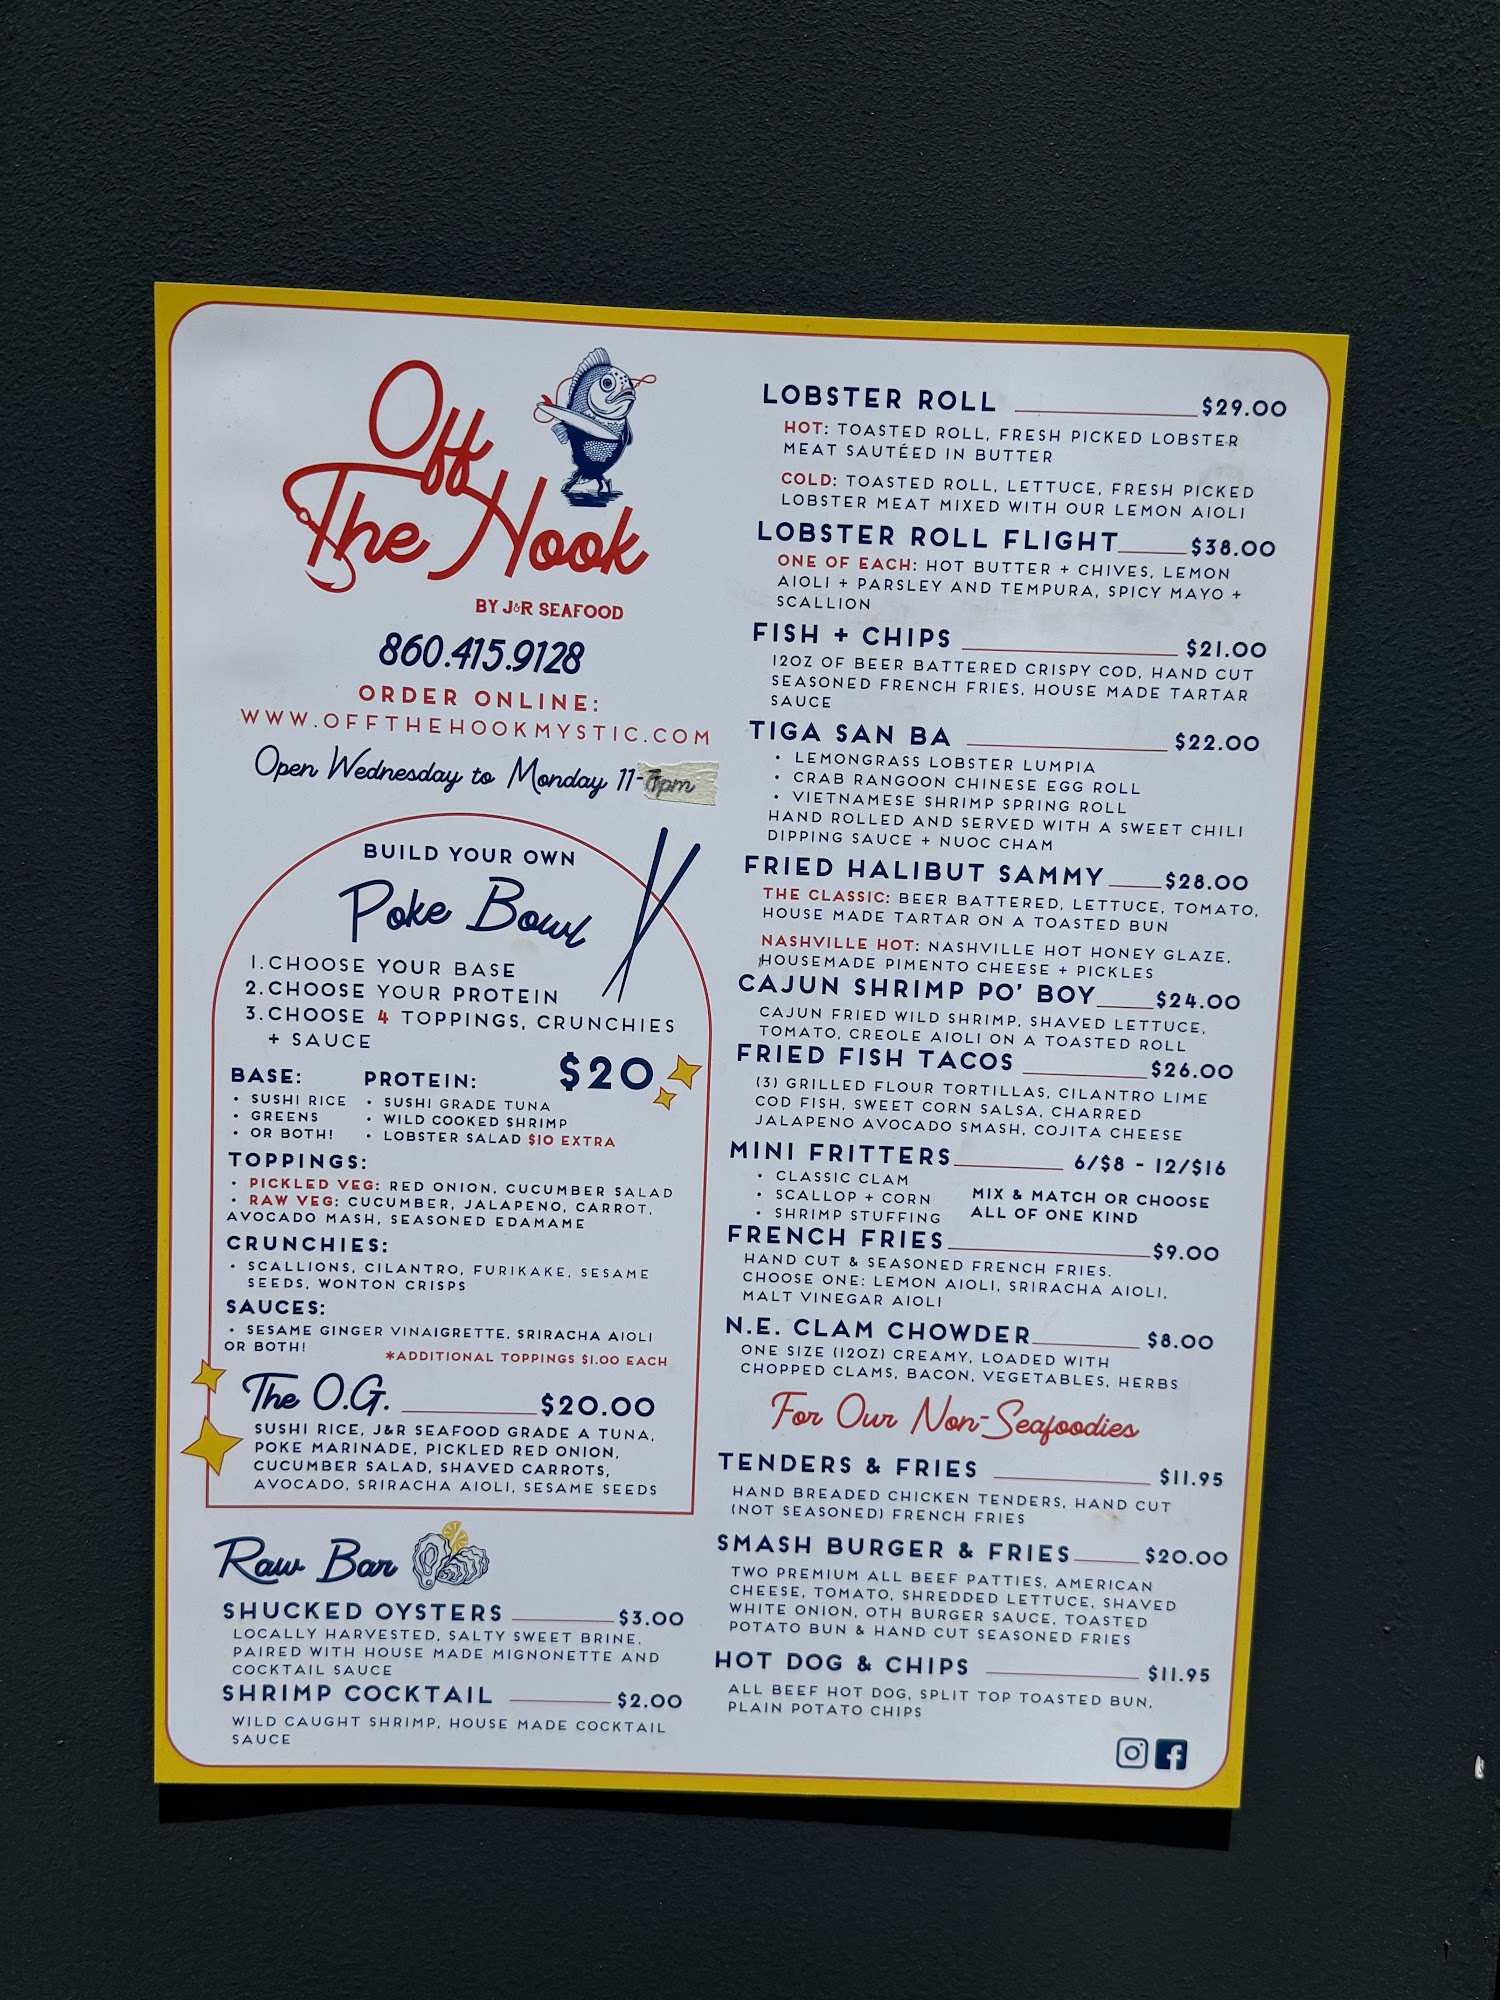 Off
The Hook
BY J&R SEAFOOD
860.415.9128
ORDER ONLINE:
WWW.OFFTHEHOOKMYSTIC.COM
Open Wednesday to Monday 11-7pm
BUILD YOUR OWN
Poke Bowl
1.CHOOSE YOUR BASE
2.CHOOSE YOUR PROTEIN
3.CHOOSE 4 TOPPINGS, CRUNCHIES
+ SAUCE
$20
BASE:
• SUSHI RICE
• GREENS
• OR BOTH!
PROTEIN:
• SUSHI GRADE TUNA
• WILD COOKED SHRIMP
• LOBSTER SALAD $10 EXTRA
TOPPINGS:
• PICKLED VEG: RED ONION, CUCUMBER SALAD
• RAW VEG: CUCUMBER, JALAPENO, CARROT,
AVOCADO MASH, SEASONED EDAMAME
CRUNCHIES:
• SCALLIONS, CILANTRO, FURIKAKE, SESAME
SEEDS, WONTON CRISPS
SAUCES:
• SESAME GINGER VINAIGRETTE, SRIRACHA AIOLI
OR BOTH!
*ADDITIONAL TOPPINGS $1.00 EACH
The O.G. $20.00
SUSHI RICE, J&R SEAFOOD GRADE A TUNA,
POKE MARINADE, PICKLED RED ONION,
CUCUMBER SALAD, SHAVED CARROTS,
AVOCADO, SRIRACHA AIOLI, SESAME SEEDS
Raw Bar
SHUCKED OYSTERS $3.00
LOCALLY HARVESTED, SALTY SWEET BRINE,
PAIRED WITH HOUSE MADE MIGNONETTE AND
COCKTAIL SAUCE
SHRIMP COCKTAIL $2.00
WILD CAUGHT SHRIMP, HOUSE MADE COCKTAIL
SAUCE
LOBSTER ROLL $29.00
HOT: TOASTED ROLL, FRESH PICKED LOBSTER
MEAT SAUTÉED IN BUTTER
COLD: TOASTED ROLL, LETTUCE, FRESH PICKED
LOBSTER MEAT MIXED WITH OUR LEMON AIOLI
LOBSTER ROLL FLIGHT $38.00
ONE OF EACH: HOT BUTTER + CHIVES, LEMON
AIOLI + PARSLEY AND TEMPURA, SPICY MAYO +
SCALLION
FISH + CHIPS $21.00
12OZ OF BEER BATTERED CRISPY COD, HAND CUT
SEASONED FRENCH FRIES, HOUSE MADE TARTAR
SAUCE
TIGA SAN BA $22.00
• LEMONGRASS LOBSTER LUMPIA
• CRAB RANGOON CHINESE EGG ROLL
• VIETNAMESE SHRIMP SPRING ROLL
HAND ROLLED AND SERVED WITH A SWEET CHILI
DIPPING SAUCE + NUOC CHAM
FRIED HALIBUT SAMMY $28.00
THE CLASSIC: BEER BATTERED, LETTUCE, TOMATO,
HOUSE MADE TARTAR ON A TOASTED BUN
NASHVILLE HOT: NASHVILLE HOT HONEY GLAZE,
HOUSEMADE PIMENTO CHEESE + PICKLES
CAJUN SHRIMP PO' BOY $24.00
CAJUN FRIED WILD SHRIMP, SHAVED LETTUCE,
TOMATO, CREOLE AIOLI ON A TOASTED ROLL
FRIED FISH TACOS $26.00
(3) GRILLED FLOUR TORTILLAS, CILANTRO LIME
COD FISH, SWEET CORN SALSA, CHARRED
JALAPENO AVOCADO SMASH, COJITA CHEESE
MINI FRITTERS 6/$8 - 12/$16
• CLASSIC CLAM
• SCALLOP + CORN
• SHRIMP STUFFING
MIX & MATCH OR CHOOSE
ALL OF ONE KIND
FRENCH FRIES $9.00
HAND CUT & SEASONED FRENCH FRIES.
CHOOSE ONE: LEMON AIOLI, SRIRACHA AIOLI,
MALT VINEGAR AIOLI
N.E. CLAM CHOWDER $8.00
ONE SIZE (12OZ) CREAMY, LOADED WITH
CHOPPED CLAMS, BACON, VEGETABLES, HERBS
For Our Non-Seafoodies
TENDERS & FRIES $11.95
HAND BREADED CHICKEN TENDERS, HAND CUT
(NOT SEASONED) FRENCH FRIES
SMASH BURGER & FRIES $20.00
TWO PREMIUM ALL BEEF PATTIES, AMERICAN
CHEESE, TOMATO, SHREDDED LETTUCE, SHAVED
WHITE ONION, OTH BURGER SAUCE, TOASTED
POTATO BUN & HAND CUT SEASONED FRIES
HOT DOG & CHIPS $11.95
ALL BEEF HOT DOG, SPLIT TOP TOASTED BUN,
PLAIN POTATO CHIPS